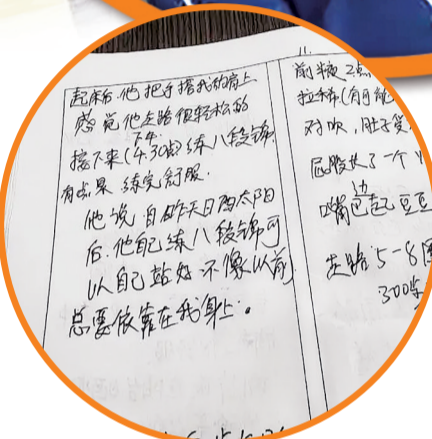 起床后.他把手搭我的肩上
感觉他走路很轻松的
下午
接下来(4.30点)练八段锦
有出果 练完舒服.
他说自昨天日西太阳
后.他自己练八段锦可
以自己站好.不像以前
总要依靠在我身上.
11.
前半夜2点
对吹,肚子
屁股长了一个
边
嘴巴起豆豆
走路5-8
300